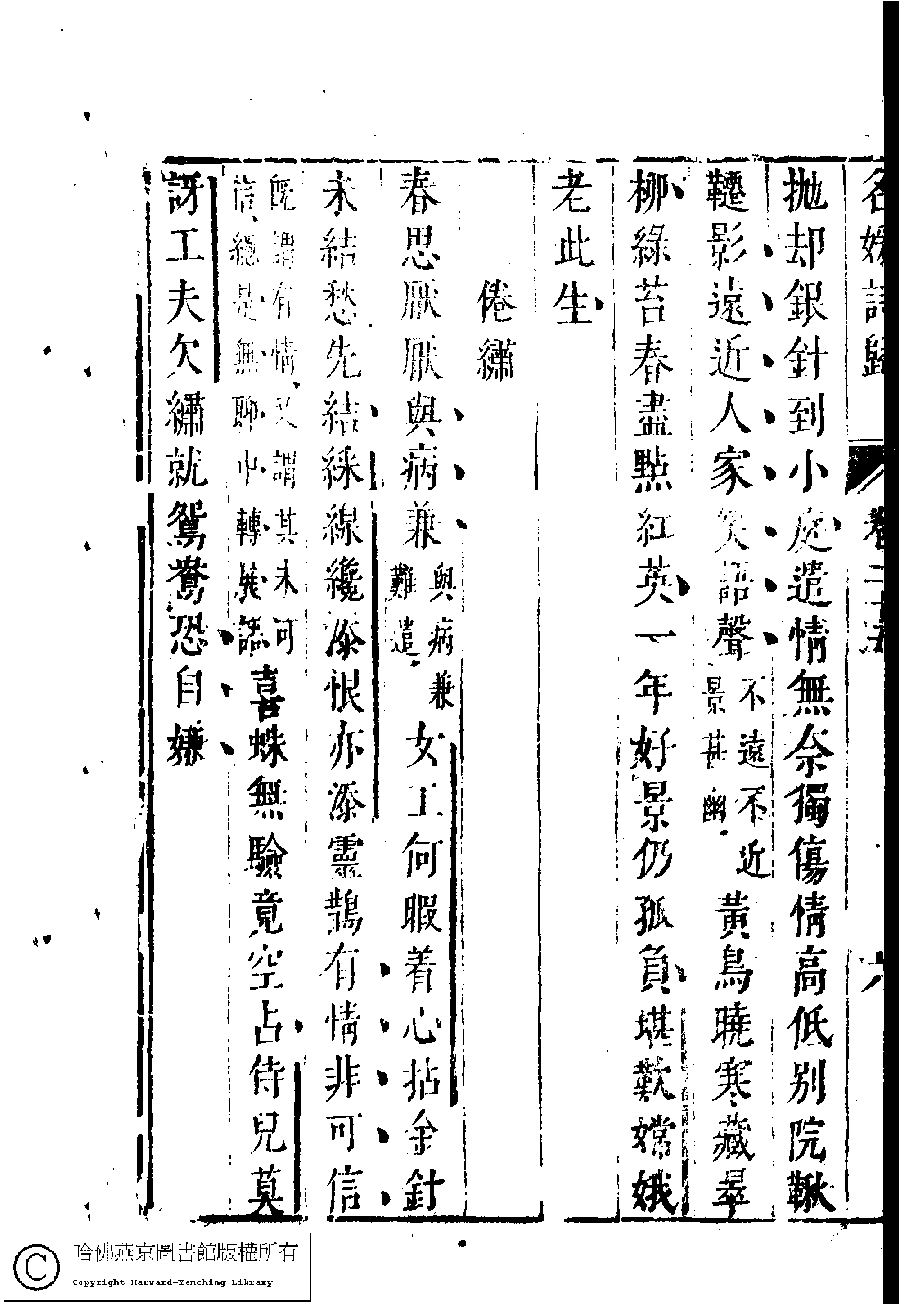 名媛詩歸 卷二十五 六
拋却銀針到小庭遣情無奈獨傷情高低別院鞦
韆影遠近人家笑語聲不遠不近景甚幽黃鳥曉寒藏翠
柳綠苔春盡點紅英一年好景仍孤負堪歎嫦娥
老此生
倦繡
春思厭厭與病兼與病兼難遣女工何暇着心拈金針
未結愁先結綵線纔添恨亦添靈鵲有情非可信
既謂有情又謂其未可信總是無聊中轉展語喜蛛無驗竟空占侍兒莫
訝工夫欠繡就鴛鴦恐自嫌
哈佛燕京圖書館版權所有
Copyright Harvard-Yenching Library